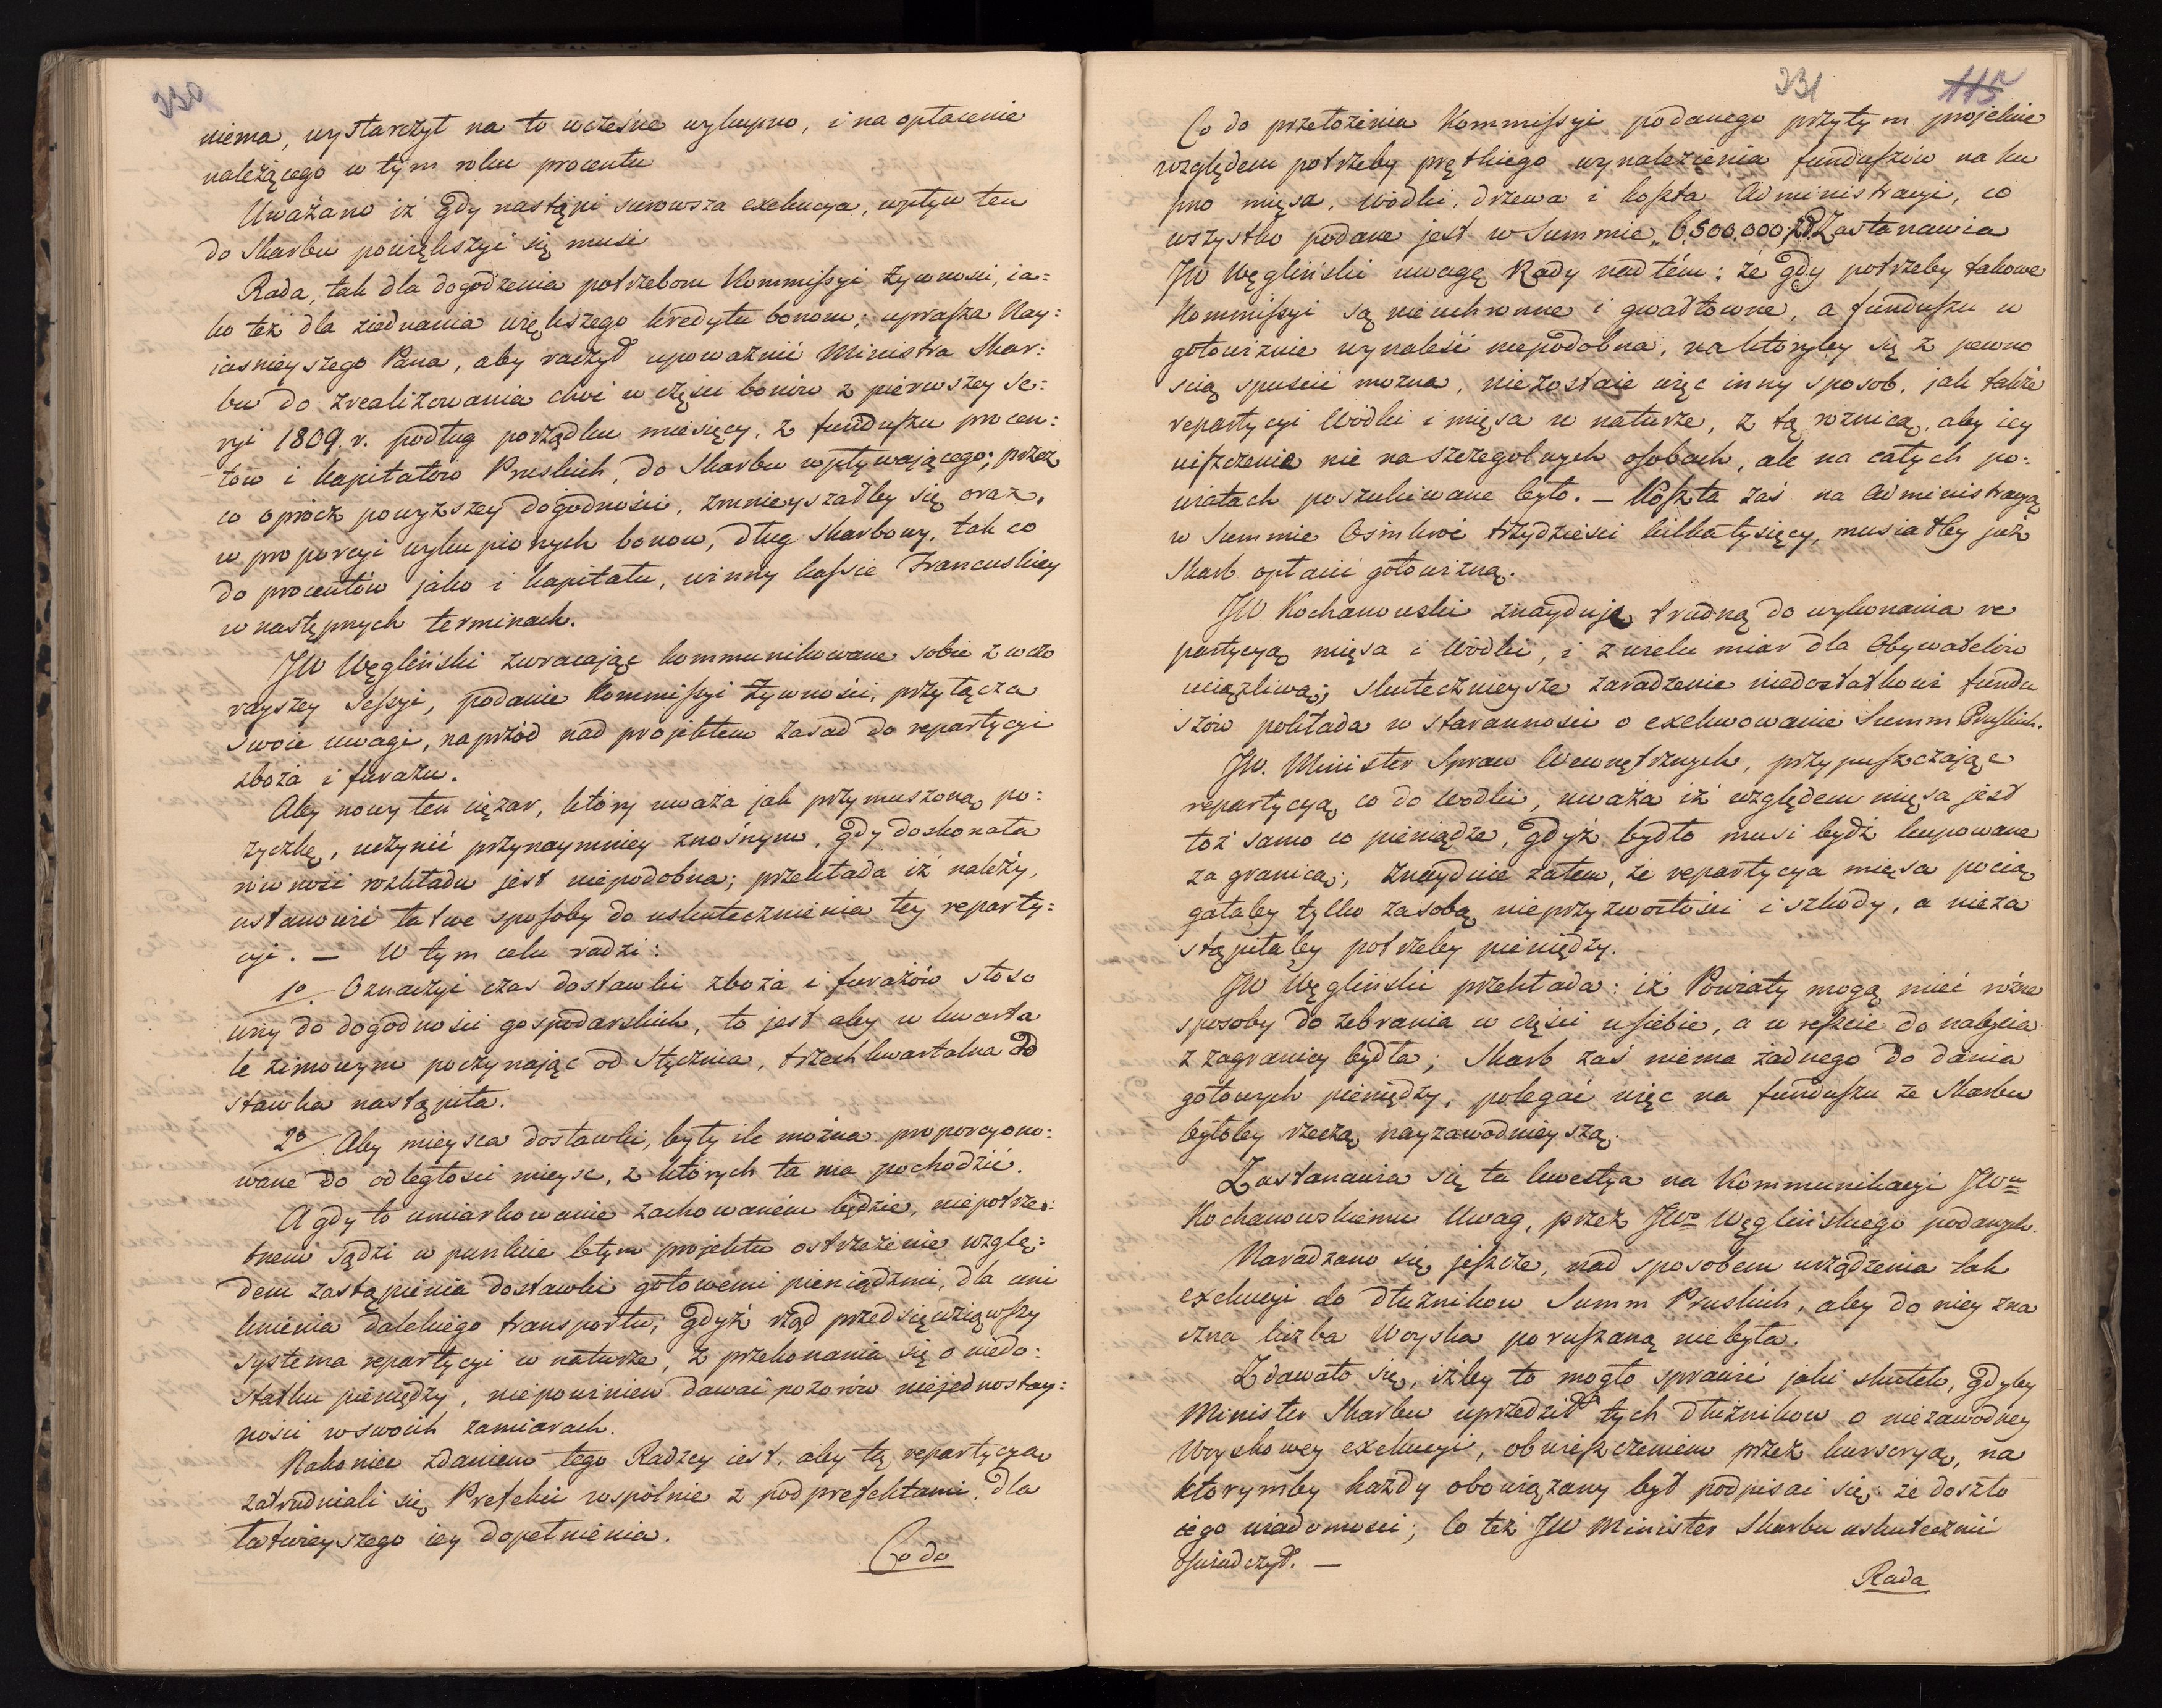 230
niema, wystarczył na to wcześne wykupno, i na opłacenie
należącego w tym roku procentu
Uważano iż gdy nastąpi surowsza exekucya, wpływ ten
do Skarbu powiększyć się musi
Rada, tak dla dogodzenia potrzebom Kommissyi Żywności, ia=
ko też dla ziednania większego kredytu bonom; uprasza Nay=
iaśnieyszego Pana, aby raczył upoważnić Ministra Skar=
bu do zrealizowania choć w części bonów z pierwszey Se=
ryi 1809. r. podług porządku miesięcy, z funduszu procen=
tów i kapitałów Pruskich, do Skarbu wpływającego; przez
co oprócz powyższey dogodności, zmnieyszałby się oraz,
w proporcyi wykupionych bonow, dług Skarbowy, tak co
do procentów jako i kapitału, winny kassie Francuskiey
w następnych terminach.
JW Węgliński zwracając kommunikowane sobie z wczo
rayszey Sessyi, podanie Kommissyi Żywności, przyłącza
swoie uwagi, naprzód nad projektem zasad do repartycyi
zboża i furażu.
Aby nowy ten ciężar, który uważa jak przymuszoną po=
życzkę, uczynić przynaymniey znośnym, gdy doskonała
równość rozkładu jest niepodobna; przekłada iż należy,
ustanowić łatwe sposoby do uskutecznienia tey reparty=
cyi. — W tym celu radzi:
1o. Oznaczyć czas dostawki zboża i furażów stoso
wny do dogodności gospodarskich, to jest aby w kwarta
le zimowym poczynając od Stycznia, trzechkwartalna do
stawka nastąpiła.
2o. Aby mieysca dostawki, były ile można proporcyono=
wane do odległości mieysc, z których ta ma pochodzić.
A gdy to umiarkowanie zachowaném będzie, niepotrze=
bnem sądzi w punkcie 6tym projektu ostrzeżenie wzglę=
dem zastąpienia dostawki gotowemi pieniądzmi, dla uni
knienia dalekiego transportu; gdyż rząd przedsięwziąwszy
systema repartycyi w naturze, z przekonania się o niedo=
statku pieniędzy, niepowinien dawać pozorów niejednostay=
ności w swoich zamiarach.
Nakoniec zdaniem tego Radzcy iest, aby tą repartycyą
zatrudniali się Prefekci wspólnie z podprefektami, dla
łatwieyszego iey dopełnienia.
Co do
231
115
Co do przełożenia Kommissyi podanego przytym projekcie
względem potrzeby prętkiego wynalezienia funduszów na ku
pno mięsa, wódki, drzewa i koszta Administracyi, co
wszystko podane jest w Summie „6,500,000: Zastanawia
JW Węgliński uwagę Rady nadtém: że gdy potrzeby takowe
Kommissyi są nieuchronne i gwałtowne, a funduszu w
gotowiznie wynaleść niepodobna, naktóryby się z pewno
ścią spuścić można, niezostaie więc inny sposob, jak także
repartycyi Wódki i mięsa w naturze, z tą roznicą, aby iey
uiszczenie nie na szczegolnych osobach, ale na całych po=
wiatach poszukiwane było. — Koszta zaś na Administracyą
w Summie Ośmkroć trzydzieści kilka tysięcy, musiałby już
Skarb opłacić gotowizną.
JW Kochanowski znayduje, trudną do wykonania re
partycyą mięsa i Wódki, i z wielu miar dla Obywatelów
uciążliwą; skutecznieysze zaradzenie niedostatkowi fundu
szów pokłada w staranności o exekwowanie Summ Pruskich.
JW. Minister Spraw Wewnętrznych, przypuszczając
repartycyą co do Wodki, uważa iż względem mięsa jest
toż samo co pieniądze, gdyż bydło musi bydź kupowane
za granicą; znayduie zatem, że repartycya mięsa pocią
gałaby tylko za sobą nieprzyzwoitości i szkody, a nieza
stąpiłaby potrzeby pieniędzy.
JW Węgliński przekłada: iż Powiaty mogą mieć różne
sposoby do zebrania w części u siebie, a w reszcie do nabycia
z zagranicy bydła; Skarb zaś niema żadnego do dania
gotowych pieniędzy, polegać więc na funduszu ze Skarbu
byłoby rzeczą nayzawodnieyszą.
Zastanawia się ta kwestya na Kommunikacyi JWu
Kochanowskiemu Uwag, przez JWo Węglińskiego podanych.
Naradzano się jeszcze, nad sposobem urządzenia tak
exekucyi do dłużnikow Summ Pruskich, aby do niey zna
czna liczba Woyska poruszaną niebyła.
Zdawało się, iżby to mogło sprawić jaki skutek, gdyby
Minister Skarbu uprzedził tych dłużnikow o niezawodney
Woyskowey exekucyi, obwieszczeniem przez kursoryą, na
którymby każdy obowiązany był podpisać się że doszło
iego wiadomości; Co też JW Minister Skarbu uskutecznić
oświadczył. —
Rada